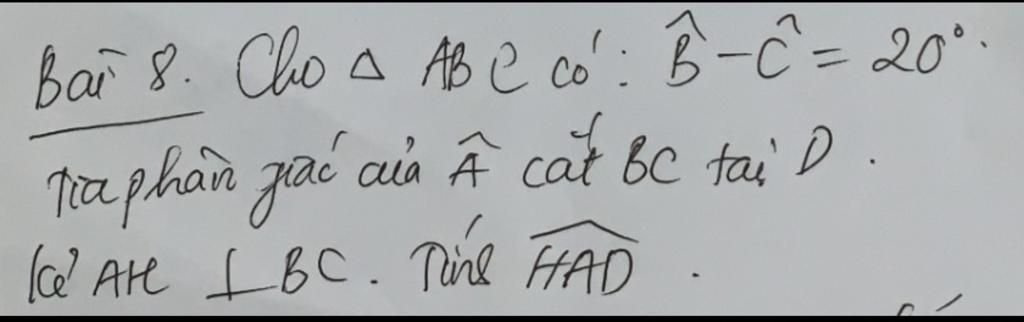 Bài 8. Cho Δ ABC có: B̂ - Ĉ = 20°.
Tia phân giác của Â cắt BC tại D.
Kẻ AH ⊥ BC. Tính \widehat{HAD}.